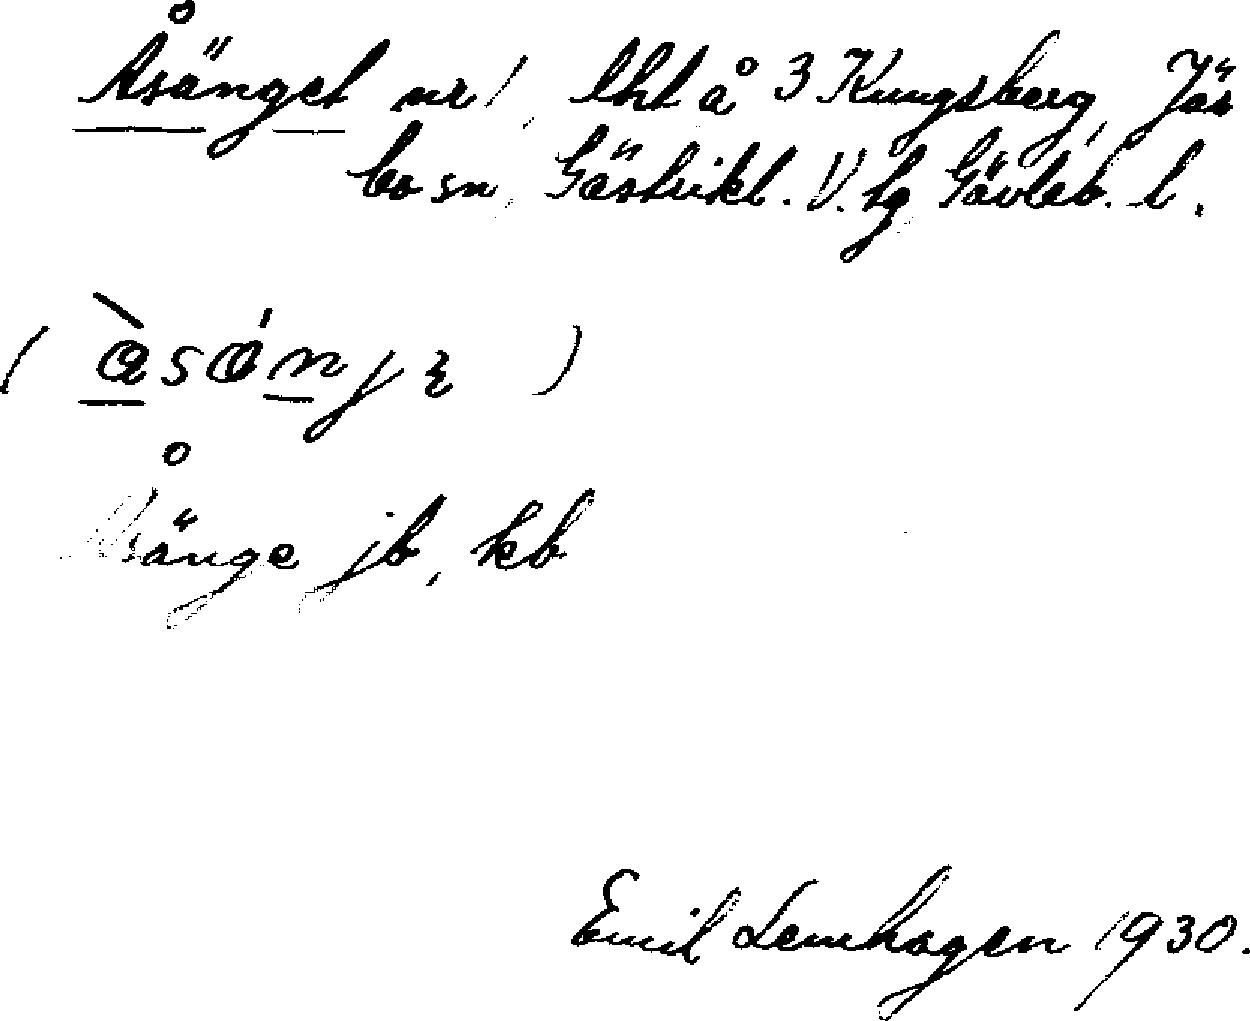 Åsänget nr 1, lht å 3 Kungsberg, Järbo
bo sn, Gästrikl. V. tg Gävleb. l.
Åsänge jb, kb
Emil Lemhagen 1930.